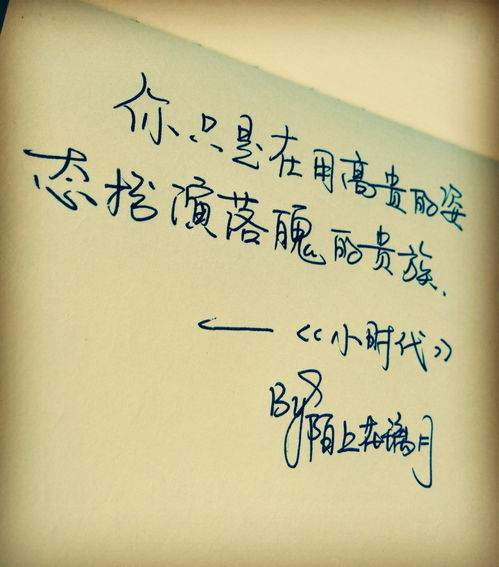 你只是在用高贵的姿
态扮演落魄的贵族.
—《小时代》
By 陌上花月